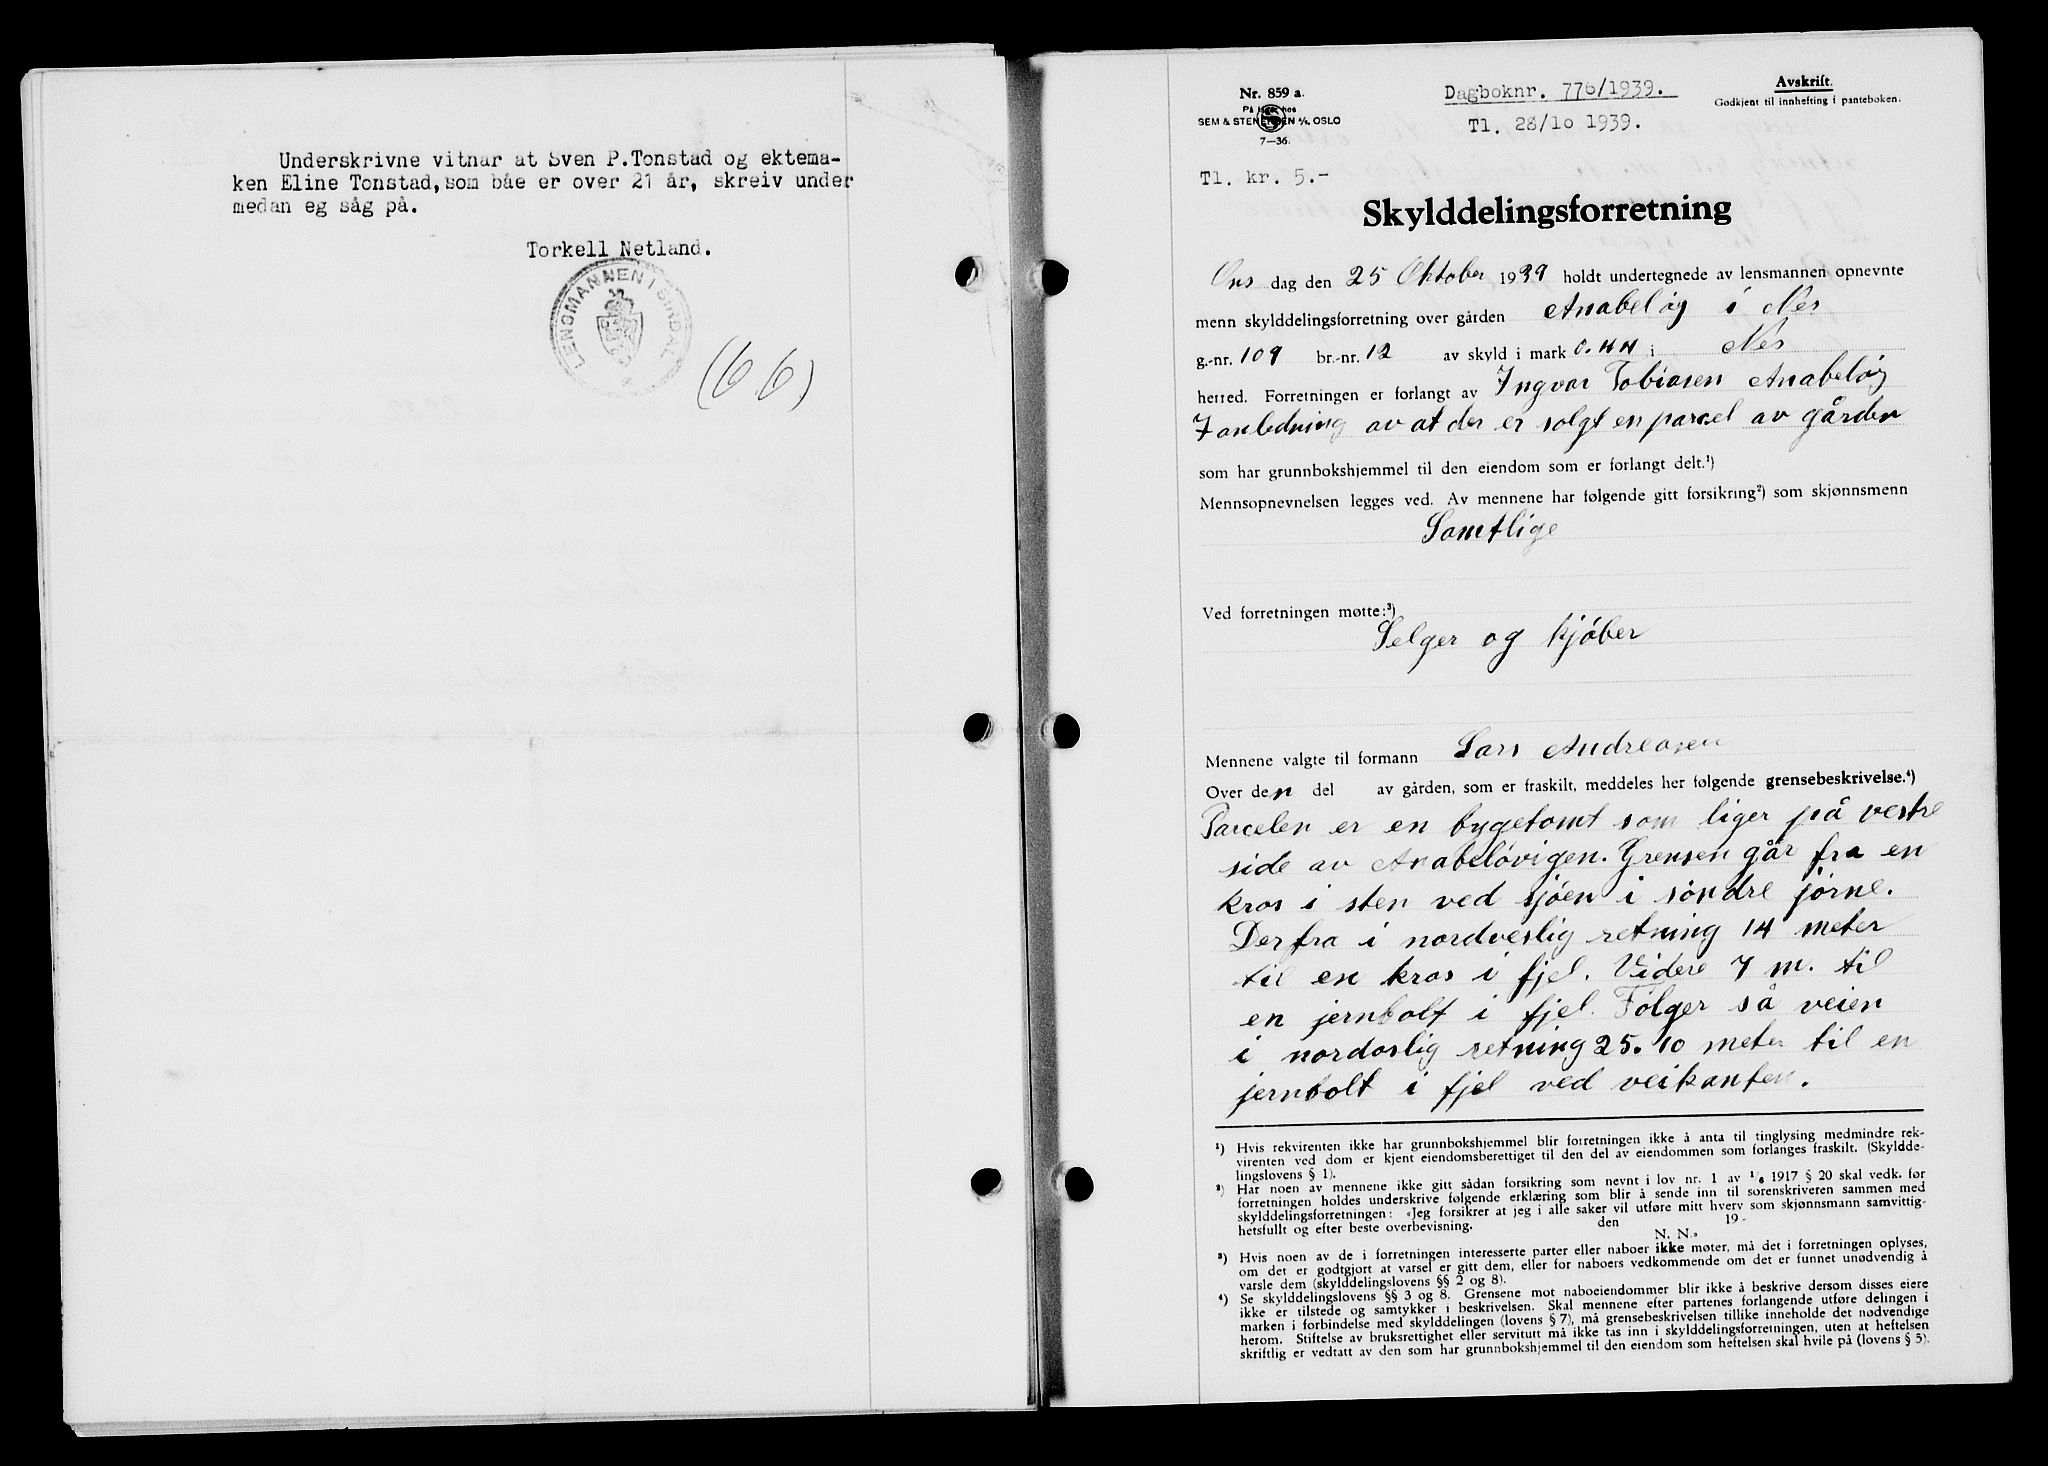 Underskrivne vitnar at Sven P.Tonstad og ektema-
ken Eline Tonstad, som båe er over 21 år, skreiv under
medan eg såg på.
Torkell Netland.
LENSMANNEN I SIRDAL
(66)
Nr. 859 a.
På lager hos
SEM & STENERSEN A/S, OSLO
7—36.
Dagboknr. 776/1939.
Tl. 28/10 1939.
Avskrift.
Godkjent til innhefting i panteboken.
Tl. kr. 5.-
Skylddelingsforretning
Ons dag den 25 Oktober 1939 holdt undertegnede av lensmannen opnevnte
menn skylddelingsforretning over gården Anabeløg i Nes
g.-nr. 109 br.-nr. 12 av skyld i mark 0.44 i Nes
herred. Forretningen er forlangt av Ingvar Tobiasen Anabeløg
I anledning av at der er solgt en parsel av gården
som har grunnbokshjemmel til den eiendom som er forlangt delt.¹)
Mennsopnevnelsen legges ved. Av mennene har følgende gitt forsikring²) som skjønnsmenn
Samtlige
Ved forretningen møtte:³)
Selger og kjøber
Mennene valgte til formann Lars Andreasen
Over den del av gården, som er fraskilt, meddeles her følgende grensebeskrivelse.⁴)
Parcelen er en bygetomt som liger på vestre
side av Anabeløvigen. Grensen går fra en
kros i sten ved sjøen i søndre jørne.
Derfra i nordveslig retning 14 meter
til en kros i fjel. Videre 7 m. til
en jernbolt i fjel. Følger så veien
i nordoslig retning 25.10 meter til en
jernbolt i fjel ved veikanten.
¹) Hvis rekvirenten ikke har grunnbokshjemmel blir forretningen ikke å anta til tinglysing medmindre rek-
virenten ved dom er kjent eiendomsberettiget til den del av eiendommen som forlanges fraskilt. (Skyldde-
lingslovens § 1).
²) Har noen av mennene ikke gitt sådan forsikring som nevnt i lov nr. 1 av 1/6 1917 § 20 skal vedk. før
forretningen holdes underskrive følgende erklæring som blir å sende inn til sorenskriveren sammen med
skylddelingsforretningen: «Jeg forsikrer at jeg i alle saker vil utføre mitt hverv som skjønnsmann samvittig-
hetsfullt og efter beste overbevisning. den 19-
N. N.»
³) Hvis noen av de i forretningen interesserte parter eller naboer ikke møter, må det i forretningen oplyses,
om det er godtgjort at varsel er gitt dem, eller for naboers vedkommende om det er funnet unødvendig å
varsle dem (skylddelingslovens §§ 2 og 8).
⁴) Se skylddelingslovens §§ 3 og 8. Grensene mot naboeiendommer blir ikke å beskrive dersom disses eiere
ikke er tilstede og samtykker i beskrivelsen. Skal mennene efter partenes forlangende utføre delingen i
marken i forbindelse med skylddelingen (lovens § 7), må grensebeskrivelsen tillike inneholde det nødvendige
herom. Stiftelse av bruksrettighet eller servitutt må ikke tas inn i skylddelingsforretningen, uten at heftelsen
skriftlig er vedtatt av den som har grunnbokshjemmel til den eiendom som heftelsen skal hvile på (lovens § 5).